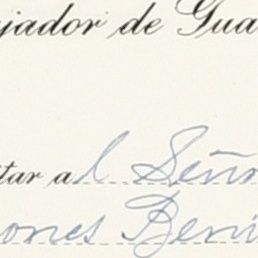 jador de Gua
tar al Señ
ones Beni